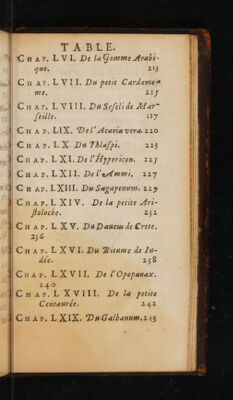 TABLE.
CHAP. LVI. De la Gomme Arabi-
que. 213
CHAP. LVII. Du petit Cardamo-
me. 215
CHAP. LVIII. Du Seseli de Mar-
seille. 217
CHAP. LIX. De l'Acacia vera. 220
CHAP. LX. Du Thlaspi. 223
CHAP. LXI. De l'Hypericon. 225
CHAP. LXII. De l'Ammi. 227
CHAP. LXIII. Du Sagapenum. 229
CHAP. LXIV. De la petite Ari-
stoloche. 232
CHAP. LXV. Du Daucus de Crete.
236
CHAP. LXVI. Du Bitume de Iu-
dée. 238
CHAP. LXVII. De l'Opopanax.
240
CHAP. LXVIII. De la petite
Centaurée. 242
CHAP. LXIX. Du Galbanum. 245